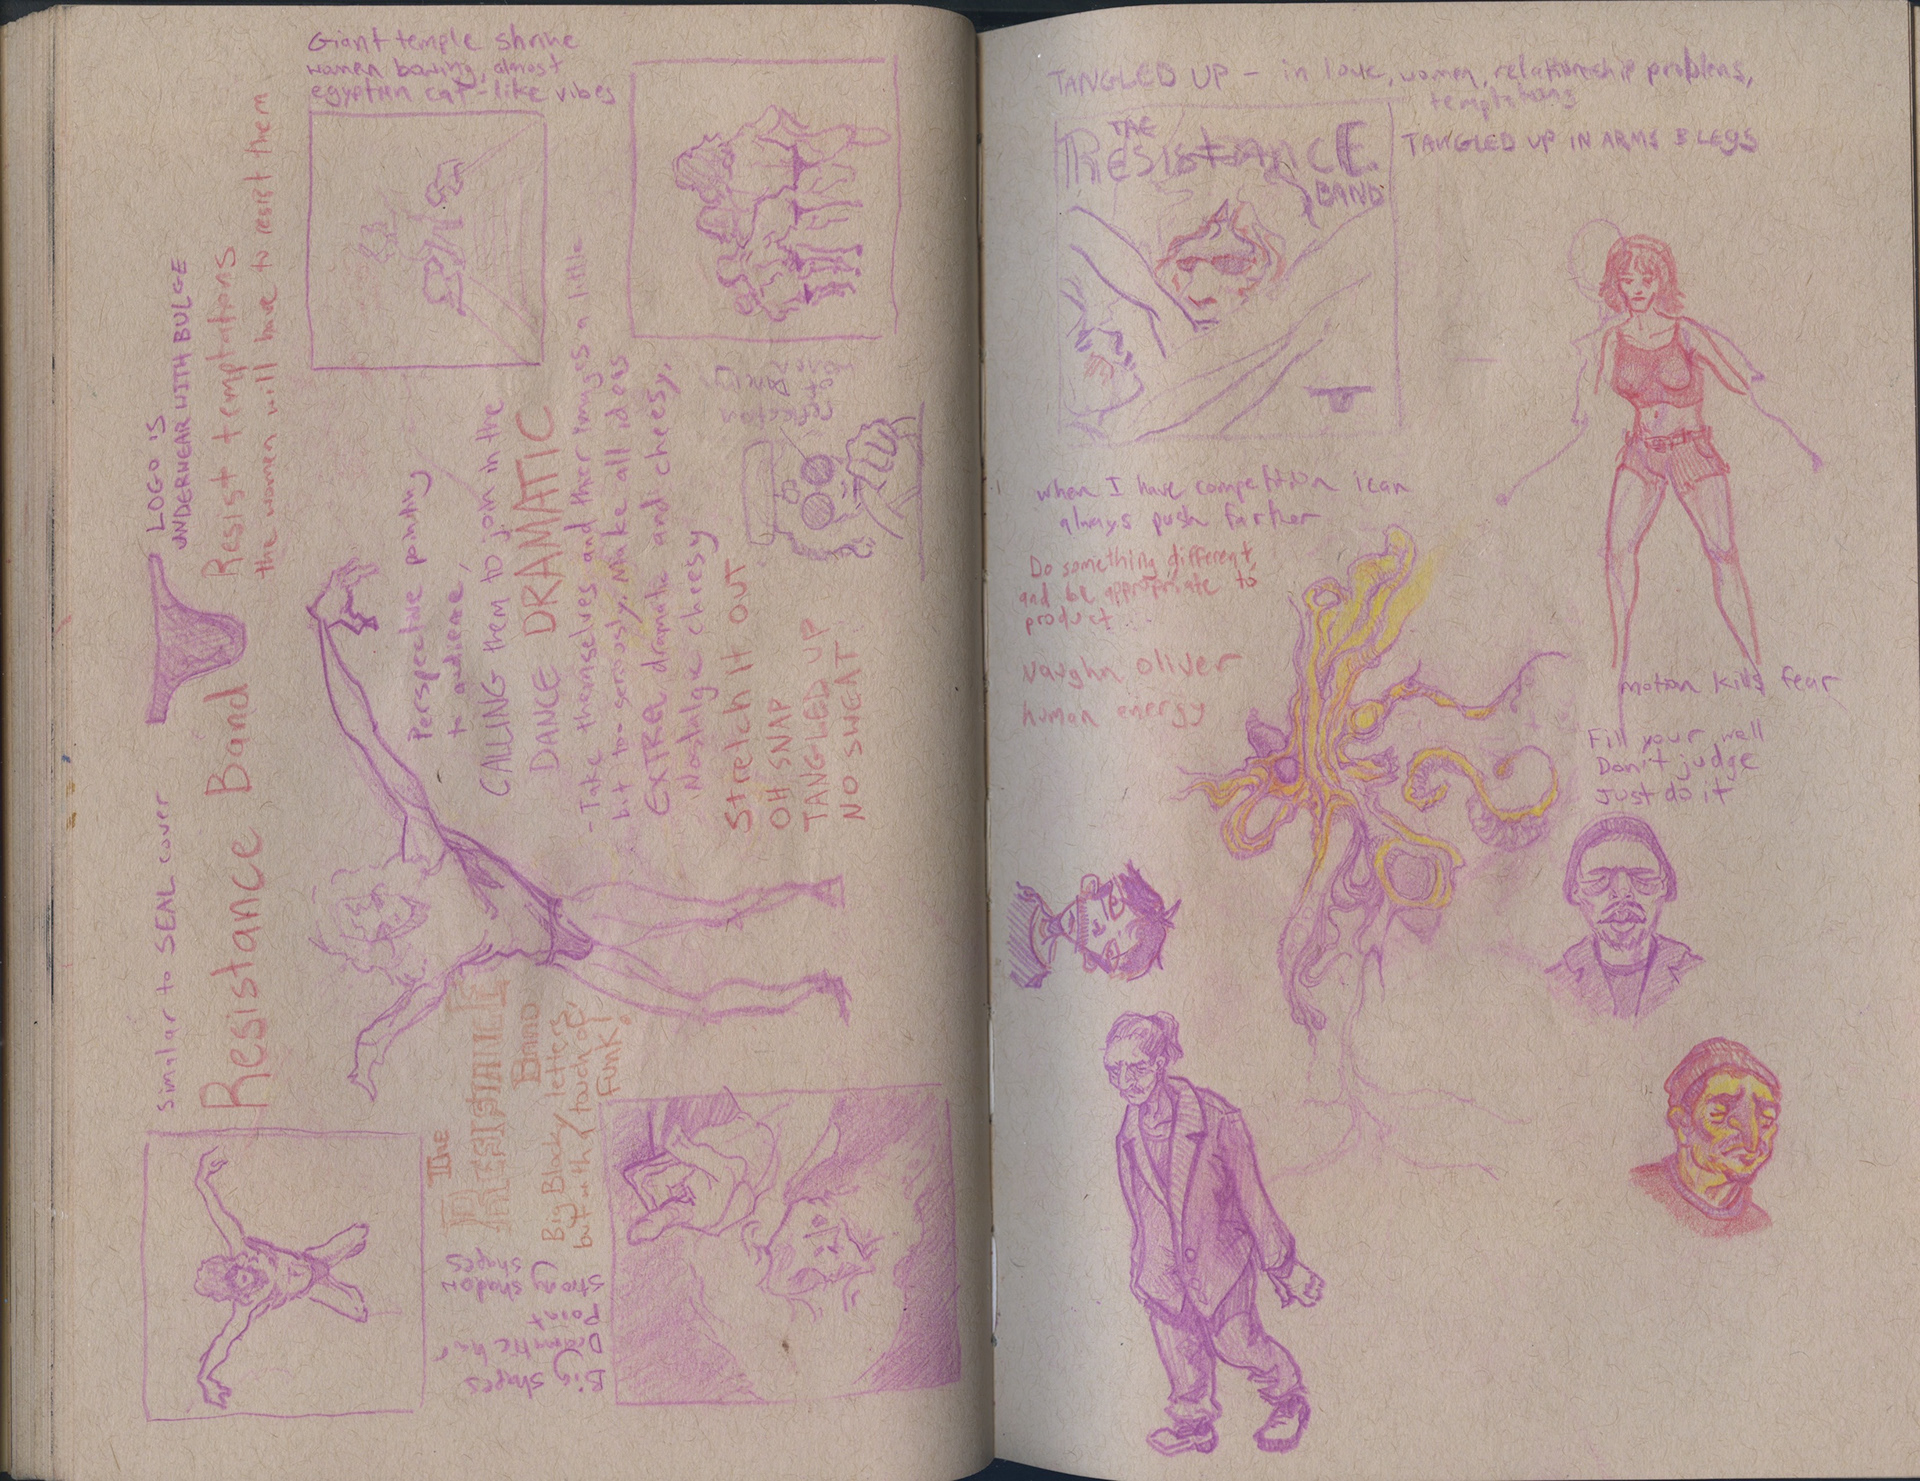 Giant temple shrine
women bowing, almost
egyptian cat-like vibes
LOGO IS
UNDERWEAR WITH BULGE
Resist temptations
the women will have to resist them
Similar to SEAL cover
Resistance Band
Perspective pointing
to audience,
CALLING them to join in the
DANCE DRAMATIC
- Take themselves and ther images a little
but too seriously. Make all ideas
EXTRA dramatic and cheesy,
Nostalge cheesy
Stretch It OUT
OH SNAP
TANGLED UP
NO SWEAT
THE
RESISTANCE
BAND
Big Blocky letters,
but with a touch of
FUNK!
Big shapes
Dramatic hair
Point
strong shadow
shapes
TANGLED UP - in love, women, relationship problems,
temptations
TANGLED UP IN ARMS & LEGS
THE
RESISTANCE
BAND
when I have competition i can
always push farther
Do something different,
and be appropriate to
product...
Vaughn Oliver
human energy
motion kills fear
Fill your well
Don't judge
Just do it